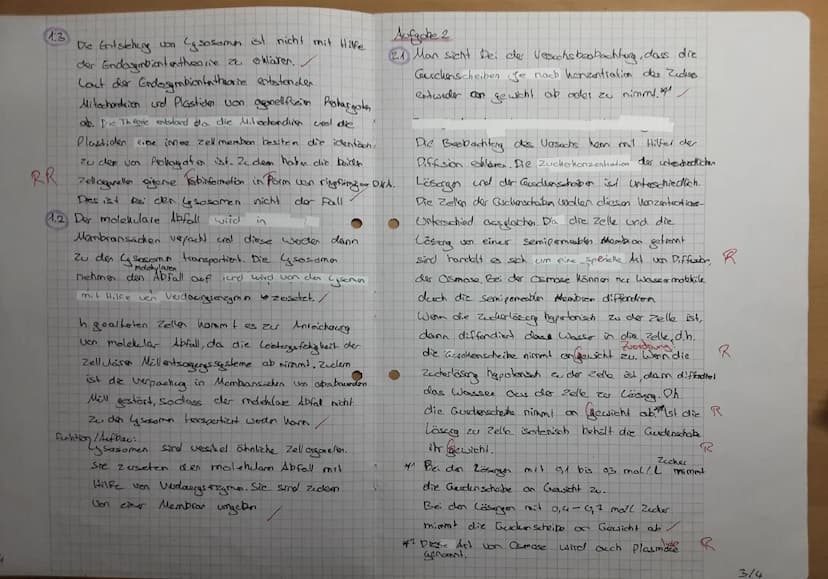 1.3
Die Entstehung von Lysosomen ist nicht mit Hilfe
der Endosymbiontentheorie zu erklären.
Laut der Endosymbiontentheorie entstanden
Mitochondrien und Plastiden von
ab. Die Theorie entstand da die Mitochondrien und die
Plastiden eine innere Zellmembran besitzen die identisch
zu den von Prokaryoten ist. Zudem haben die beiden
RR
Zellorganellen eigene Erbinformation in Form von ringförmiger DNA.
Dies ist bei den Lysosomen nicht der Fall
1.2
Der molekulare Abfall wird in
Membransäcken verpackt und diese werden dann
zu den Lysosomen transportiert. Die Lysosomen
molekularen
nehmen den Abfall auf und wird von den Lysosomen
mit Hilfe von Verdauungsenzymen zersetzt.
In gealterten Zellen kommt es zur Anreicherung
von molekular Abfall, da die Leistungsfähigkeit der
zellulären Müllentsorgungssysteme ab nimmt. Zudem
ist die Verpackung in Membransäcken von abzubauenden
Müll gestört, sodass der molekulare Abfall nicht
zu den Lysosomen transportiert werden kann.
Funktion/Aufbau:
Lysosomen sind vesikel ähnliche Zellorganellen.
Sie zersetzen den molekularen Abfall mit
Hilfe von Verdauungsenzymen. Sie sind zudem
von einer Membran umgeben
Aufgabe 2
2.1
Man sieht bei der Versuchsbeobachtung, dass die
Gurkenscheiben je nach Konzentration des Zuckers
entweder an gewicht ab oder zu nimmt. *1
Die Beobachtung des Versuchs kann mit Hilfe der
Diffusion erklären. Die Zuckerkonzentration der unterschiedlichen
Lösungen und der Gurkenscheiben ist unterschiedlich.
Die Zellen der Gurkenscheiben wollen diesen Konzentrations-
unterschied ausgleichen. Da die Zelle und die
Lösung von einer semipermeablen Membran getrennt
sind handelt es sich um eine spezielle Art von Diffusion,
R
der Osmose. Bei der Osmose können nur Wassermoleküle
durch die semipermeable Membran diffundieren.
Wenn die Zuckerlösung hypotonisch zu der Zelle ist,
dann diffundiert das Wasser in die Zelle, d.h.
Zuordnung!
die Gurkenscheibe nimmt an gewicht zu. Wenn die
R
Zuckerlösung hypotonisch zu der Zelle ist, dann diffundiert
das Wasser aus der Zelle zur Lösung. D.h.
die Gurkenscheibe nimmt an gewicht ab. *2 Ist die
R
Lösung zu Zelle isotonisch behält die Gurkenscheibe
ihr gewicht.
R
*1 Bei den Lösungen mit 0,1 bis 0,3 mol/L Zucker nimmt
die Gurkenscheibe an Gewicht zu.
Bei den Lösungen mit 0,4 - 0,7 mol/L Zucker
nimmt die Gurkenscheibe an Gewicht ab
*2 Diese Art von Osmose wird auch Plasmolyse
R
genannt.
3/4